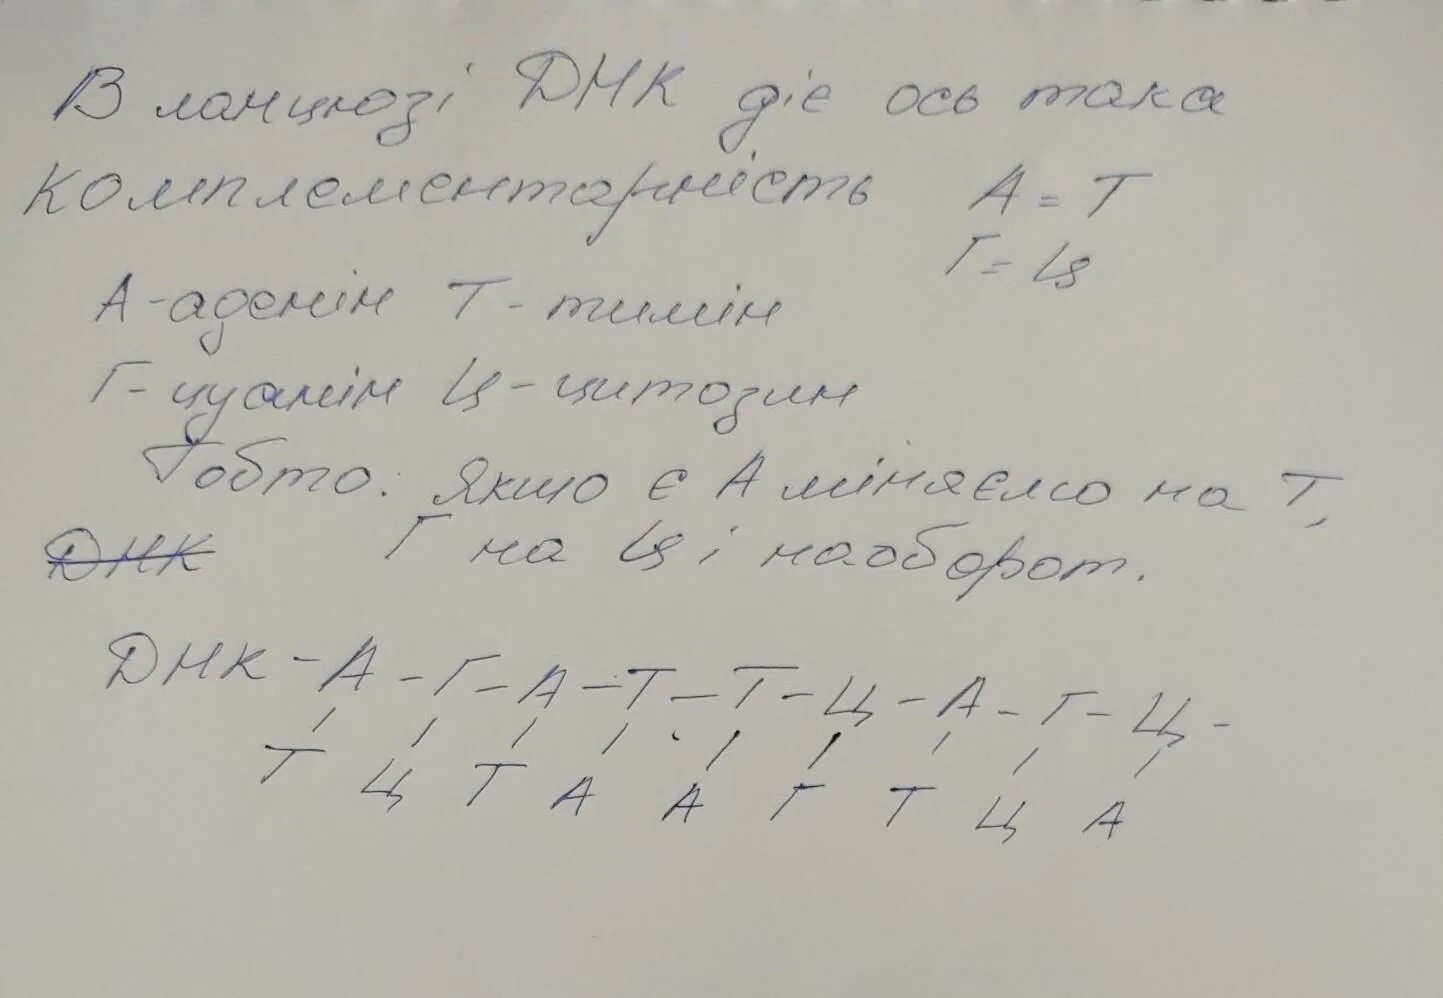 В ланцюзі ДНК діє ось така
комплементарність А = Т
Г = Ц
А - аденін Т - тимін
Г - цуанін Ц - цитозин
Тобто: якщо є А міняємо на Т,
ДНК Г на Ц і наоборот.
ДНК - А - Г - А - Т - Т - Ц - А - Г - Ц -
Т Ц Т А А Г Т Ц А